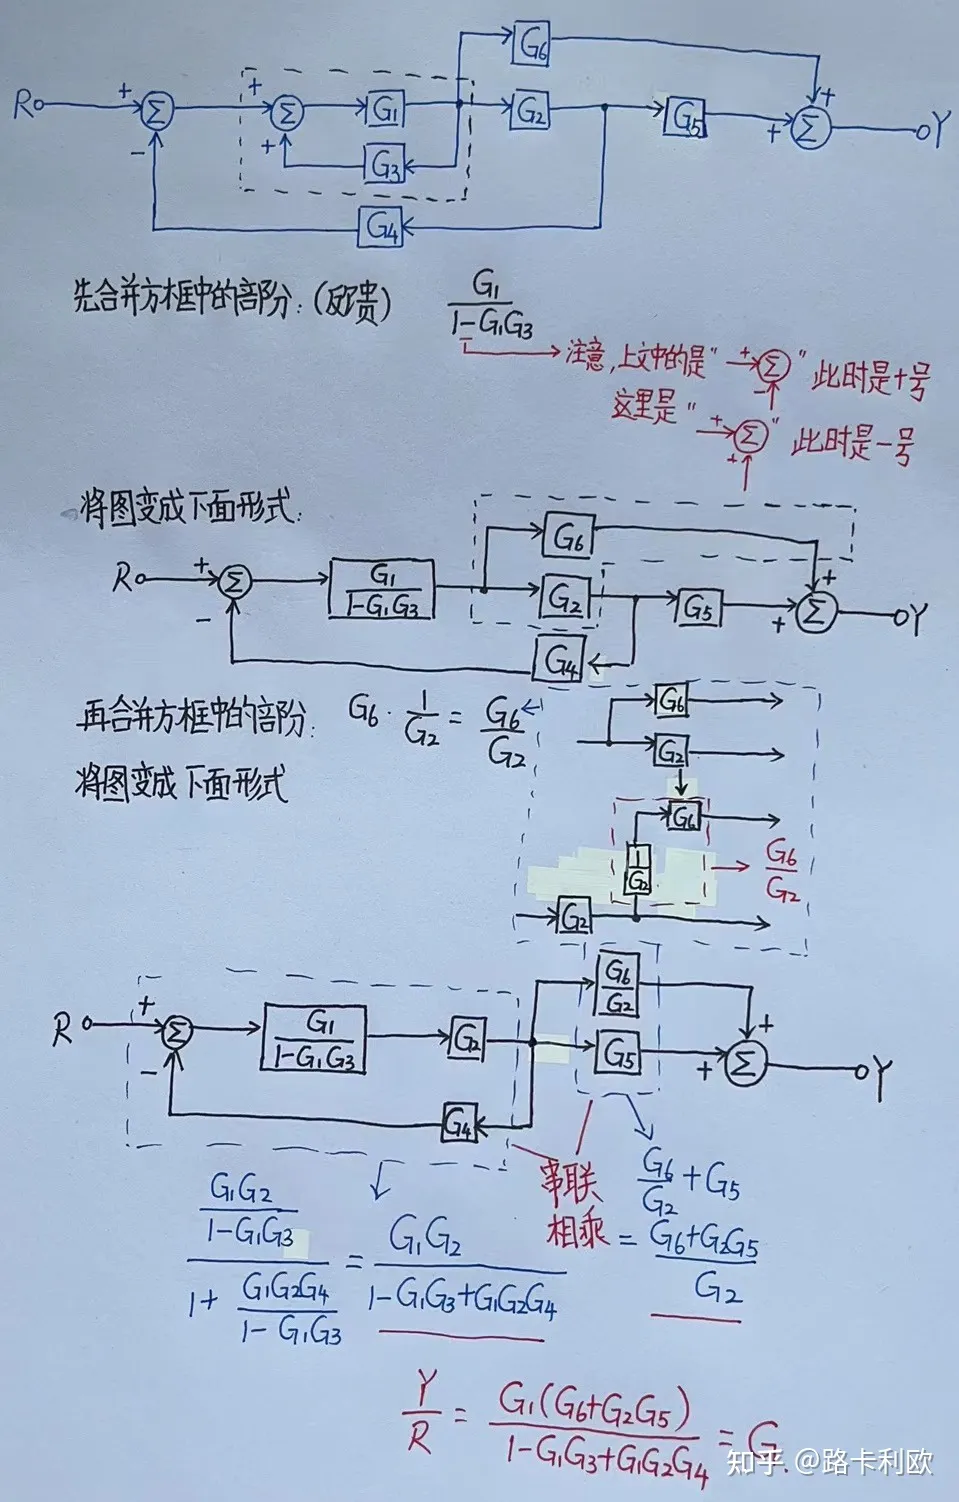 G6
R + Σ + Σ G1 G2 G5 + Σ + Y
- + G3
G4
先合并方框中的部分:(反馈) G1/(1-G1G3)
注意,上文中的是" + Σ - "此时是+号
这里是" + Σ + "此时是-号
将图变成下面形式:
G6
R + Σ G1/(1-G1G3) G2 G5 + Σ + Y
- G4
再合并方框中的部分: G6 · 1/G2 = G6/G2
G6
G2
将图变成下面形式
G6
1/G2 G6/G2
G2
G6/G2
R + Σ G1/(1-G1G3) G2 G5 + Σ + Y
- G4
串联
相乘
(G1G2/(1-G1G3))/(1+G1G2G4/(1-G1G3)) = G1G2/(1-G1G3+G1G2G4)
G6/G2+G5
= (G6+G2G5)/G2
Y/R = G1(G6+G2G5)/(1-G1G3+G1G2G4) = G.
知乎 @路卡利欧